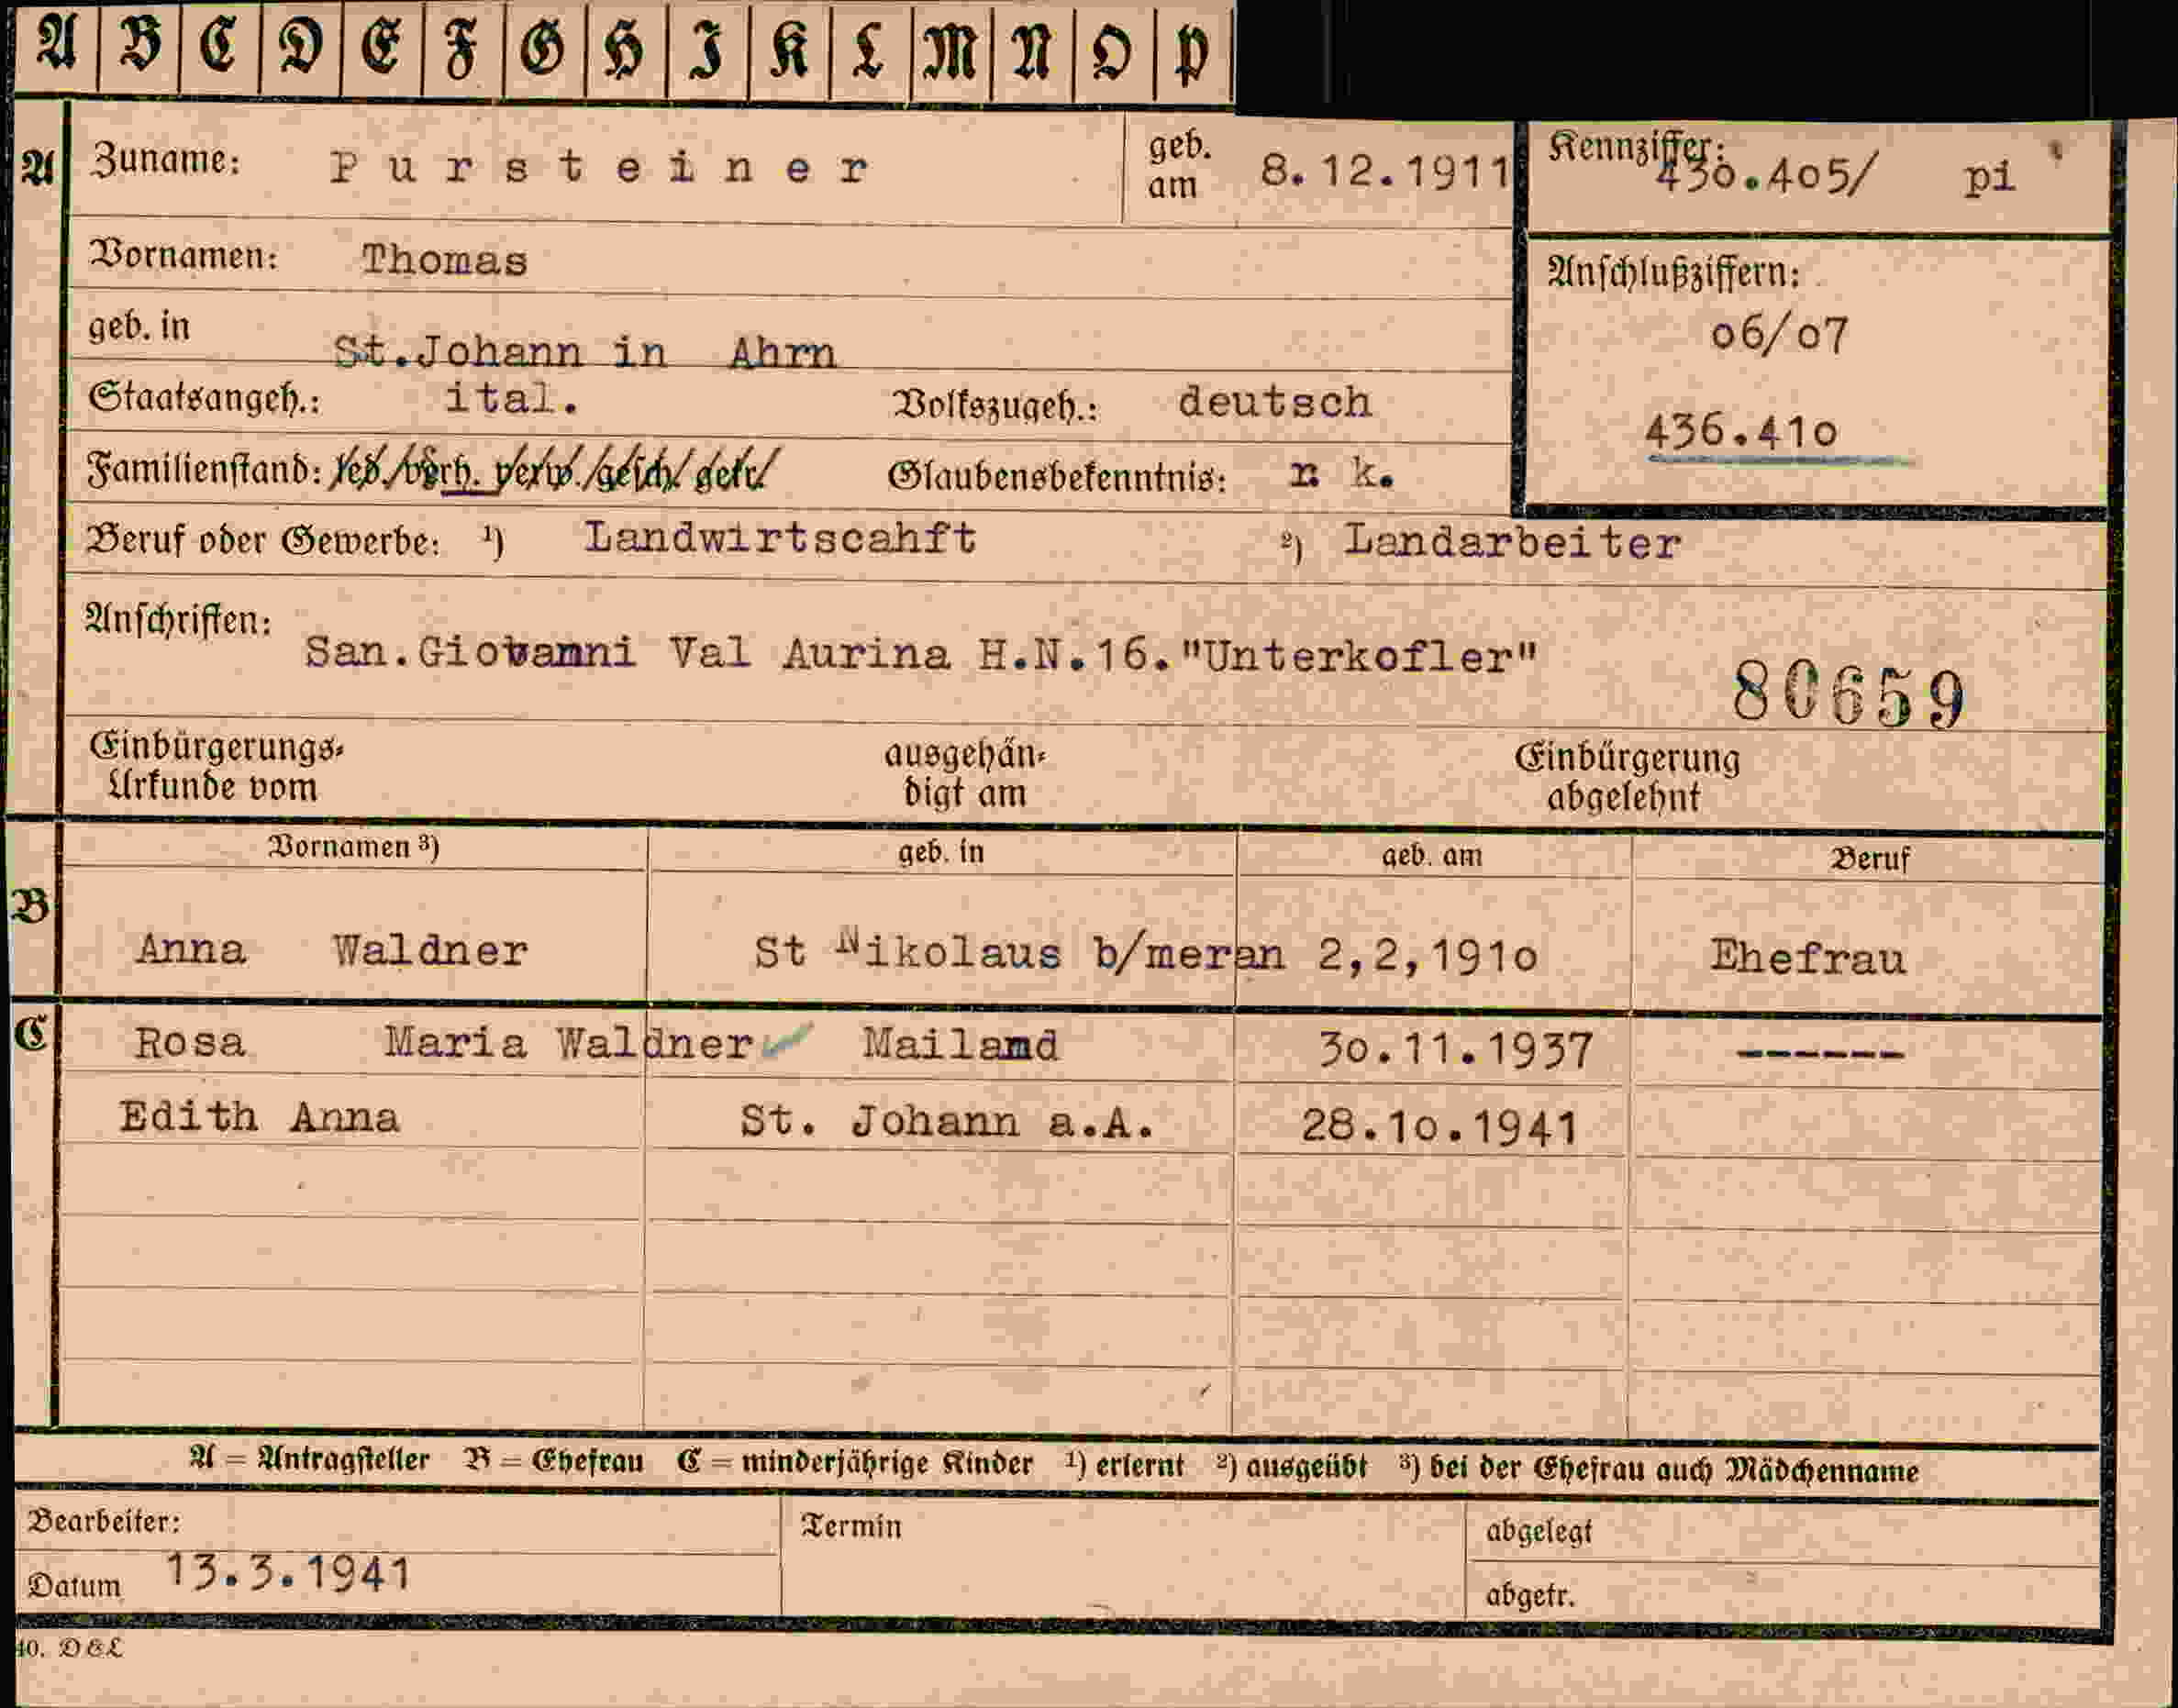 A B C D E F G H I K L M N O P
A Zuname: Pursteiner geb. am 8.12.1911 Kennziffer: 430.405/ pi
Vornamen: Thomas
Anschlußziffern:
geb. in St.Johann in Ahrn 06/07
Staatsangeh.: ital. Volkszugeh.: deutsch
436.410
Familienstand: led./verh. verw./gesch./getr/ Glaubensbekenntnis: r k.
Beruf oder Gewerbe: ¹) Landwirtscahft ²) Landarbeiter
Anschriften: San.Giovanni Val Aurina H.N.16."Unterkofler"
80659
Einbürgerungs- ausgehän- Einbürgerung
Urkunde vom digt am abgelehnt
Vornamen ³) geb. in geb. am Beruf
B
Anna Waldner St Nikolaus b/meran 2,2,1910 Ehefrau
C Rosa Maria Waldner Mailand 30.11.1937 ------
Edith Anna St. Johann a.A. 28.10.1941
A = Antragsteller B = Ehefrau C = minderjährige Kinder ¹) erlernt ²) ausgeübt ³) bei der Ehefrau auch Mädchenname
Bearbeiter: Termin abgelegt
Datum 13.3.1941 abgetr.
40. DEL